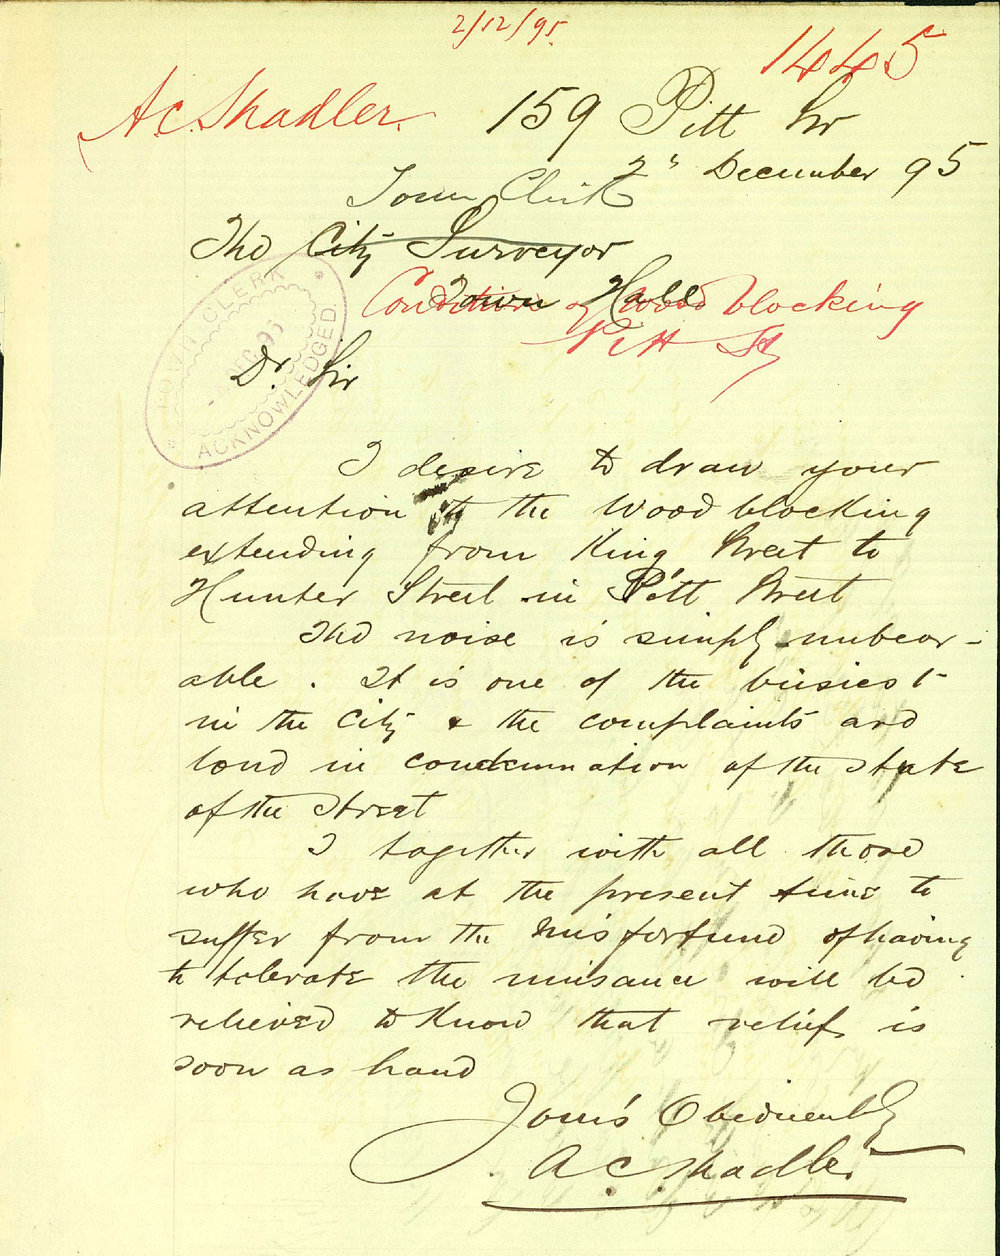 2/12/95.
1445
A.C. Shadler.
159 Pitt St
2" December 95
Town Clerk
The City Surveyor
Town Hall
Condition of Wood blocking
Pitt St
TOWN CLERK
95
ACKNOWLEDGED.
Dr Sir
I desire to draw your
attention to the Wood blocking
extending from King Street to
Hunter Street in Pitt Street
The noise is simply unbear-
able. It is one of the busiest
in the City & the complaints are
loud in condemnation of the state
of the street
I together with all those
who have at the present time to
suffer from the misfortune of having
to tolerate the nuisance will be
relieved to know that relief is
soon as hand
Yours Obediently
A C. Shadler